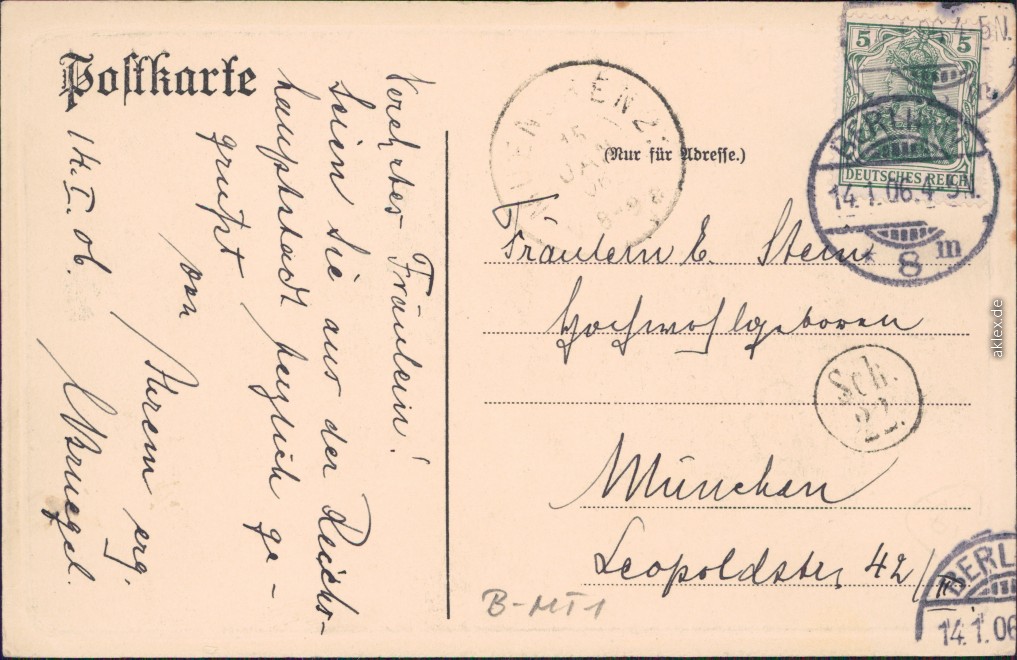 Postkarte
(Nur für Adresse.)
Verehrtes Fräulein!
Seien Sie aus der Reichs-
hauptstadt herzlich ge-
grüßt
von
Ihrem erg.
14.I.06.
Fräulein E. Stein
Hochwohlgeboren
München
Leopoldstr. 42/
B-MT1
5 5
DEUTSCHES REICH
BERLIN
14.1.06.4-5N.
* 8 m
15
JAN
06
8-9
Sch.
22.
BERLI
14.1.06
aklex.de